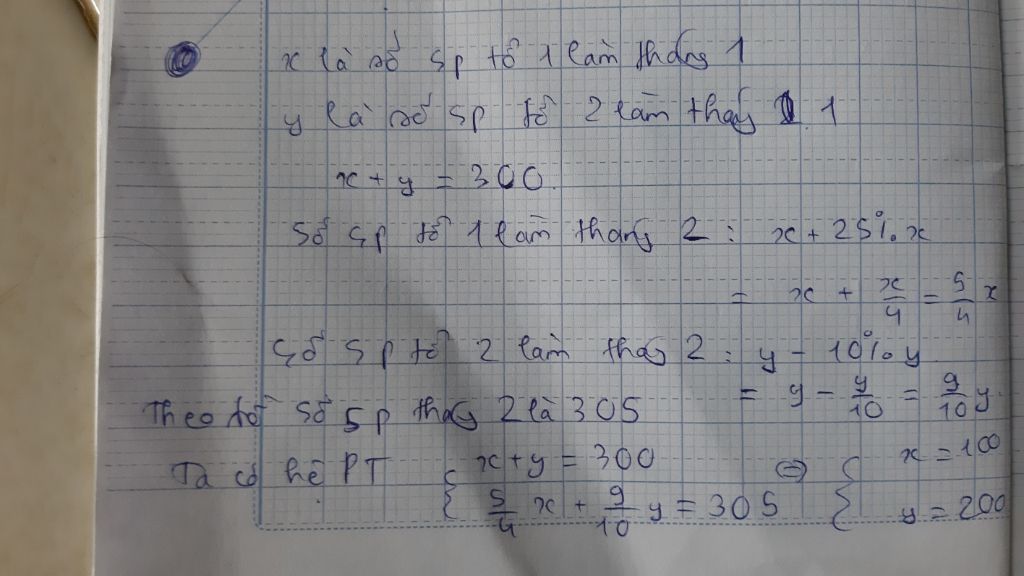 x là số sp tổ 1 làm tháng 1
y là số sp tổ 2 làm thág 1
x + y = 300
Số sp tổ 1 làm tháng 2 : x + 25%.x
= x + x/4 = 5/4 x
Số sp tổ 2 làm thág 2 : y - 10% y
= y - y/10 = 9/10 y
Theo số sp thág 2 là 305
Ta có hệ PT { x + y = 300 ⇔ { x = 100
5/4 x + 9/10 y = 305 y = 200